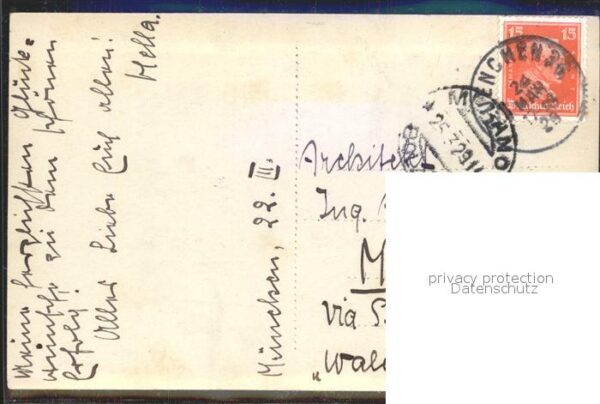 Meine herzlichsten Glück-
wünsche zu dem schönen
Erfolg!
Alles Liebe Euch allen!
Hella.
München, 22. III.
15 15
Deutsches Reich
MÜNCHEN
MERANO
25.3.29
Architekt
Ing.
M
via S.
„Wald
privacy protection
Datenschutz